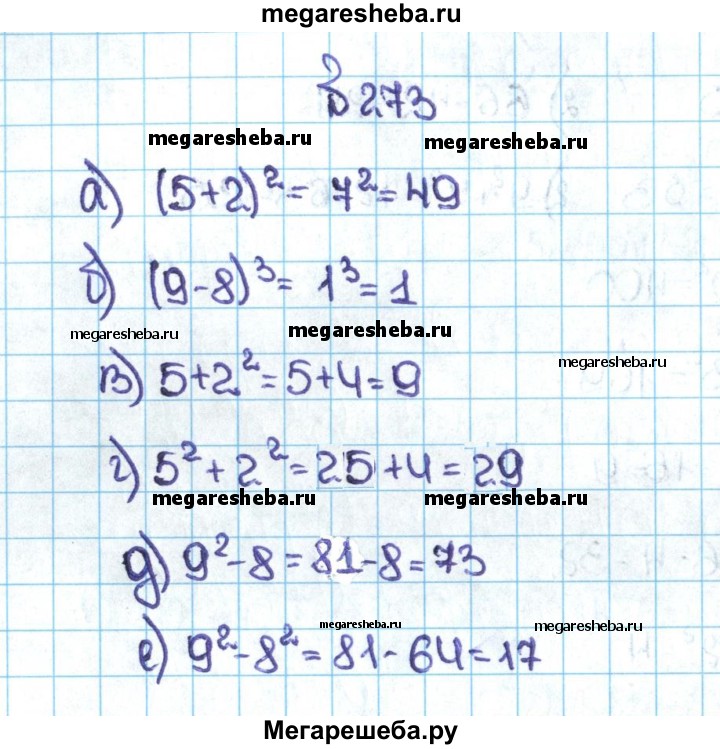 megaresheba.ru
273
megaresheba.ru megaresheba.ru
а) (5+2)² = 7² = 49
б) (9-8)³ = 1³ = 1
megaresheba.ru megaresheba.ru
megaresheba.ru
в) 5+2² = 5+4 = 9
г) 5² + 2² = 25 + 4 = 29
megaresheba.ru megaresheba.ru
д) 9² - 8 = 81 - 8 = 73
megaresheba.ru megaresheba.ru
е) 9² - 8² = 81 - 64 = 17
Мегарешеба.ру